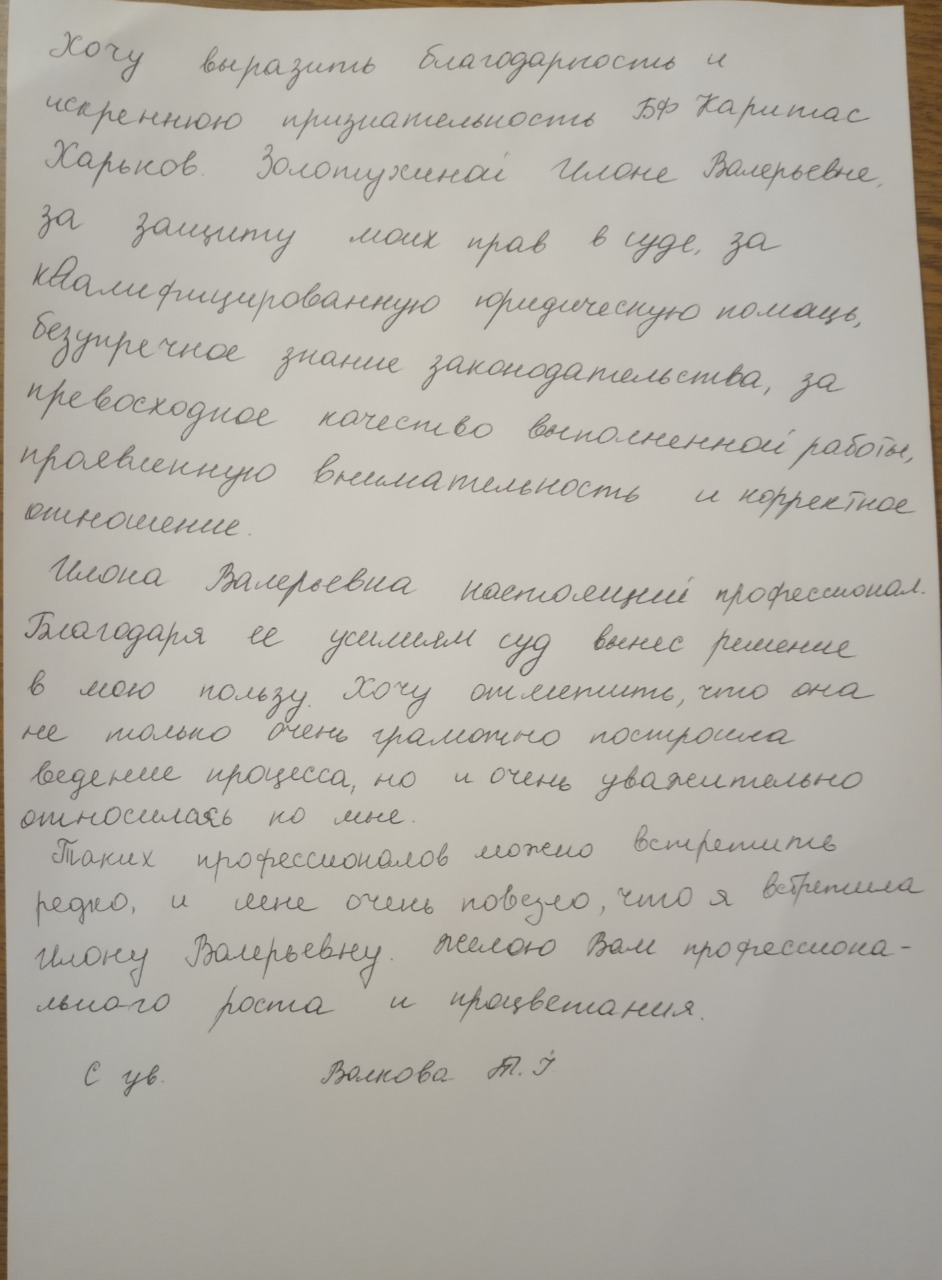 Хочу выразить благодарность и
искреннюю признательность БФ Каритас
Харьков. Золотухиной Илоне Валерьевне,
за защиту моих прав в суде, за
квалифицированную юридическую помощь,
безупречное знание законодательства, за
превосходное качество выполненной работы,
проявленную внимательность и корректное
отношение.
Илона Валерьевна настоящий профессионал.
Благодаря ее усилиям суд вынес решение
в мою пользу. Хочу отметить, что она
не только очень грамотно построила
ведение процесса, но и очень уважительно
относилась ко мне.
Таких профессионалов можно встретить
редко, и мне очень повезло, что я встретила
Илону Валерьевну. Желаю Вам профессиона-
льного роста и процветания.
С ув. Волкова Т. І